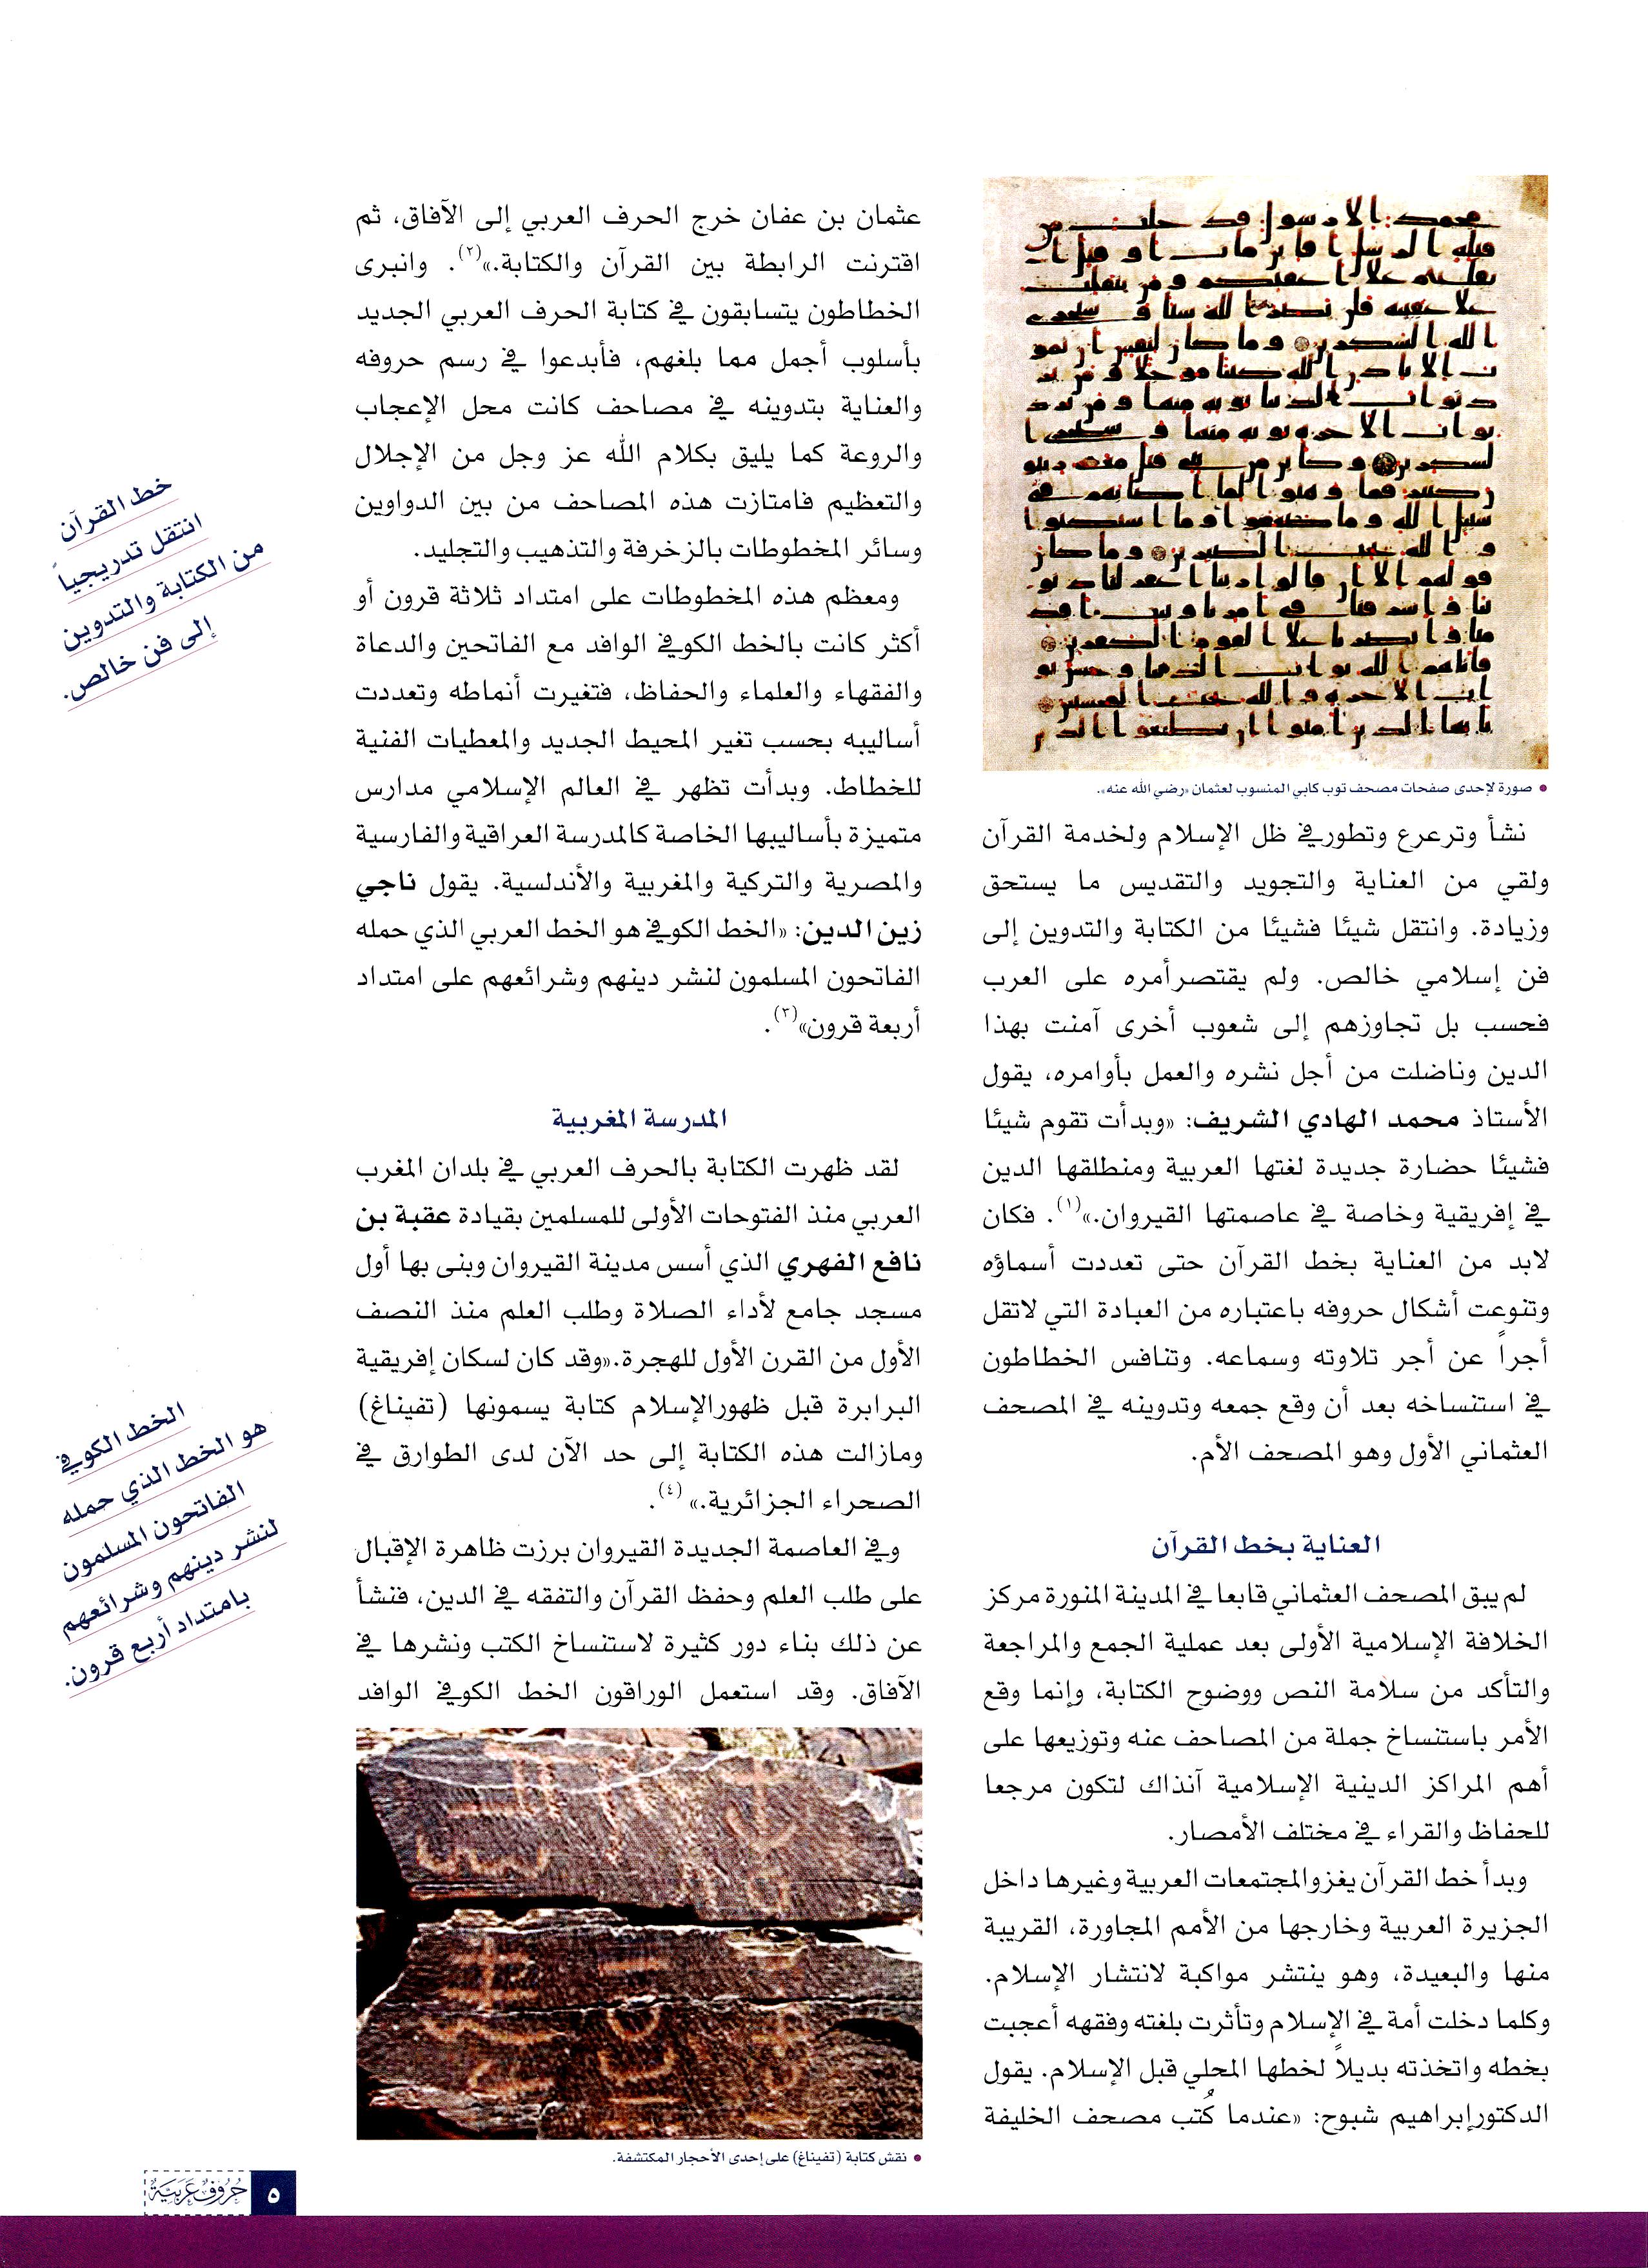 • صورة لإحدى صفحات مصحف توب كابي المنسوب لعثمان «رضي الله عنه».
نشأ وترعرع وتطورفي ظل الإسلام ولخدمة القرآن
ولقي من العناية والتجويد والتقديس ما يستحق
وزيادة. وانتقل شيئا فشيئا من الكتابة والتدوين إلى
فن إسلامي خالص. ولم يقتصرأمره على العرب
فحسب بل تجاوزهم إلى شعوب أخرى آمنت بهذا
الدين وناضلت من أجل نشره والعمل بأوامره، يقول
الأستاذ محمد الهادي الشريف: «وبدأت تقوم شيئا
فشيئا حضارة جديدة لغتها العربية ومنطلقها الدين
في إفريقية وخاصة في عاصمتها القيروان.»(١). فكان
لابد من العناية بخط القرآن حتى تعددت أسماؤه
وتنوعت أشكال حروفه باعتباره من العبادة التي لاتقل
أجراً عن أجر تلاوته وسماعه. وتنافس الخطاطون
في استنساخه بعد أن وقع جمعه وتدوينه في المصحف
العثماني الأول وهو المصحف الأم.
العناية بخط القرآن
لم يبق المصحف العثماني قابعا في المدينة المنورة مركز
الخلافة الإسلامية الأولى بعد عملية الجمع والمراجعة
والتأكد من سلامة النص ووضوح الكتابة، وإنما وقع
الأمر باستنساخ جملة من المصاحف عنه وتوزيعها على
أهم المراكز الدينية الإسلامية آنذاك لتكون مرجعا
للحفاظ والقراء في مختلف الأمصار.
وبدأ خط القرآن يغزوالمجتمعات العربية وغيرها داخل
الجزيرة العربية وخارجها من الأمم المجاورة، القريبة
منها والبعيدة، وهو ينتشر مواكبة لانتشار الإسلام.
وكلما دخلت أمة في الإسلام وتأثرت بلغته وفقهه أعجبت
بخطه واتخذته بديلاً لخطها المحلي قبل الإسلام. يقول
الدكتورإبراهيم شبوح: «عندما كُتب مصحف الخليفة
عثمان بن عفان خرج الحرف العربي إلى الآفاق، ثم
اقترنت الرابطة بين القرآن والكتابة.»(٢). وانبرى
الخطاطون يتسابقون في كتابة الحرف العربي الجديد
بأسلوب أجمل مما بلغهم، فأبدعوا في رسم حروفه
والعناية بتدوينه في مصاحف كانت محل الإعجاب
والروعة كما يليق بكلام الله عز وجل من الإجلال
والتعظيم فامتازت هذه المصاحف من بين الدواوين
وسائر المخطوطات بالزخرفة والتذهيب والتجليد.
ومعظم هذه المخطوطات على امتداد ثلاثة قرون أو
أكثر كانت بالخط الكوفي الوافد مع الفاتحين والدعاة
والفقهاء والعلماء والحفاظ، فتغيرت أنماطه وتعددت
أساليبه بحسب تغير المحيط الجديد والمعطيات الفنية
للخطاط. وبدأت تظهر في العالم الإسلامي مدارس
متميزة بأساليبها الخاصة كالمدرسة العراقية والفارسية
والمصرية والتركية والمغربية والأندلسية. يقول ناجي
زين الدين: «الخط الكوفي هو الخط العربي الذي حمله
الفاتحون المسلمون لنشر دينهم وشرائعهم على امتداد
أربعة قرون»(٣).
المدرسة المغربية
لقد ظهرت الكتابة بالحرف العربي في بلدان المغرب
العربي منذ الفتوحات الأولى للمسلمين بقيادة عقبة بن
نافع الفهري الذي أسس مدينة القيروان وبنى بها أول
مسجد جامع لأداء الصلاة وطلب العلم منذ النصف
الأول من القرن الأول للهجرة.«وقد كان لسكان إفريقية
البرابرة قبل ظهورالإسلام كتابة يسمونها (تفيناغ)
ومازالت هذه الكتابة إلى حد الآن لدى الطوارق في
الصحراء الجزائرية.» (٤).
وفي العاصمة الجديدة القيروان برزت ظاهرة الإقبال
على طلب العلم وحفظ القرآن والتفقه في الدين، فنشأ
عن ذلك بناء دور كثيرة لاستنساخ الكتب ونشرها في
الآفاق. وقد استعمل الوراقون الخط الكوفي الوافد
• نقش كتابة (تفيناغ) على إحدى الأحجار المكتشفة.
خط القرآن
انتقل تدريجياً
من الكتابة والتدوين
إلى فن خالص.
الخط الكوفي
هو الخط الذي حمله
الفاتحون المسلمون
لنشر دينهم وشرائعهم
بامتداد أربع قرون.
حروف عربية
٥